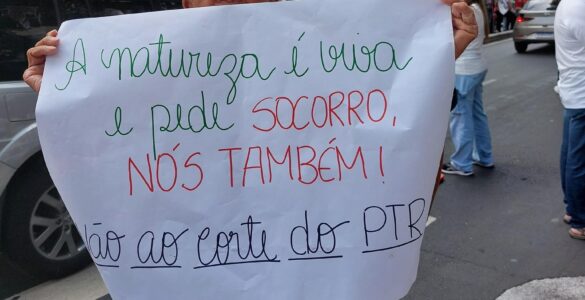 A natureza é viva
e pede SOCORRO,
NÓS TAMBÉM!
Não ao corte do PTR